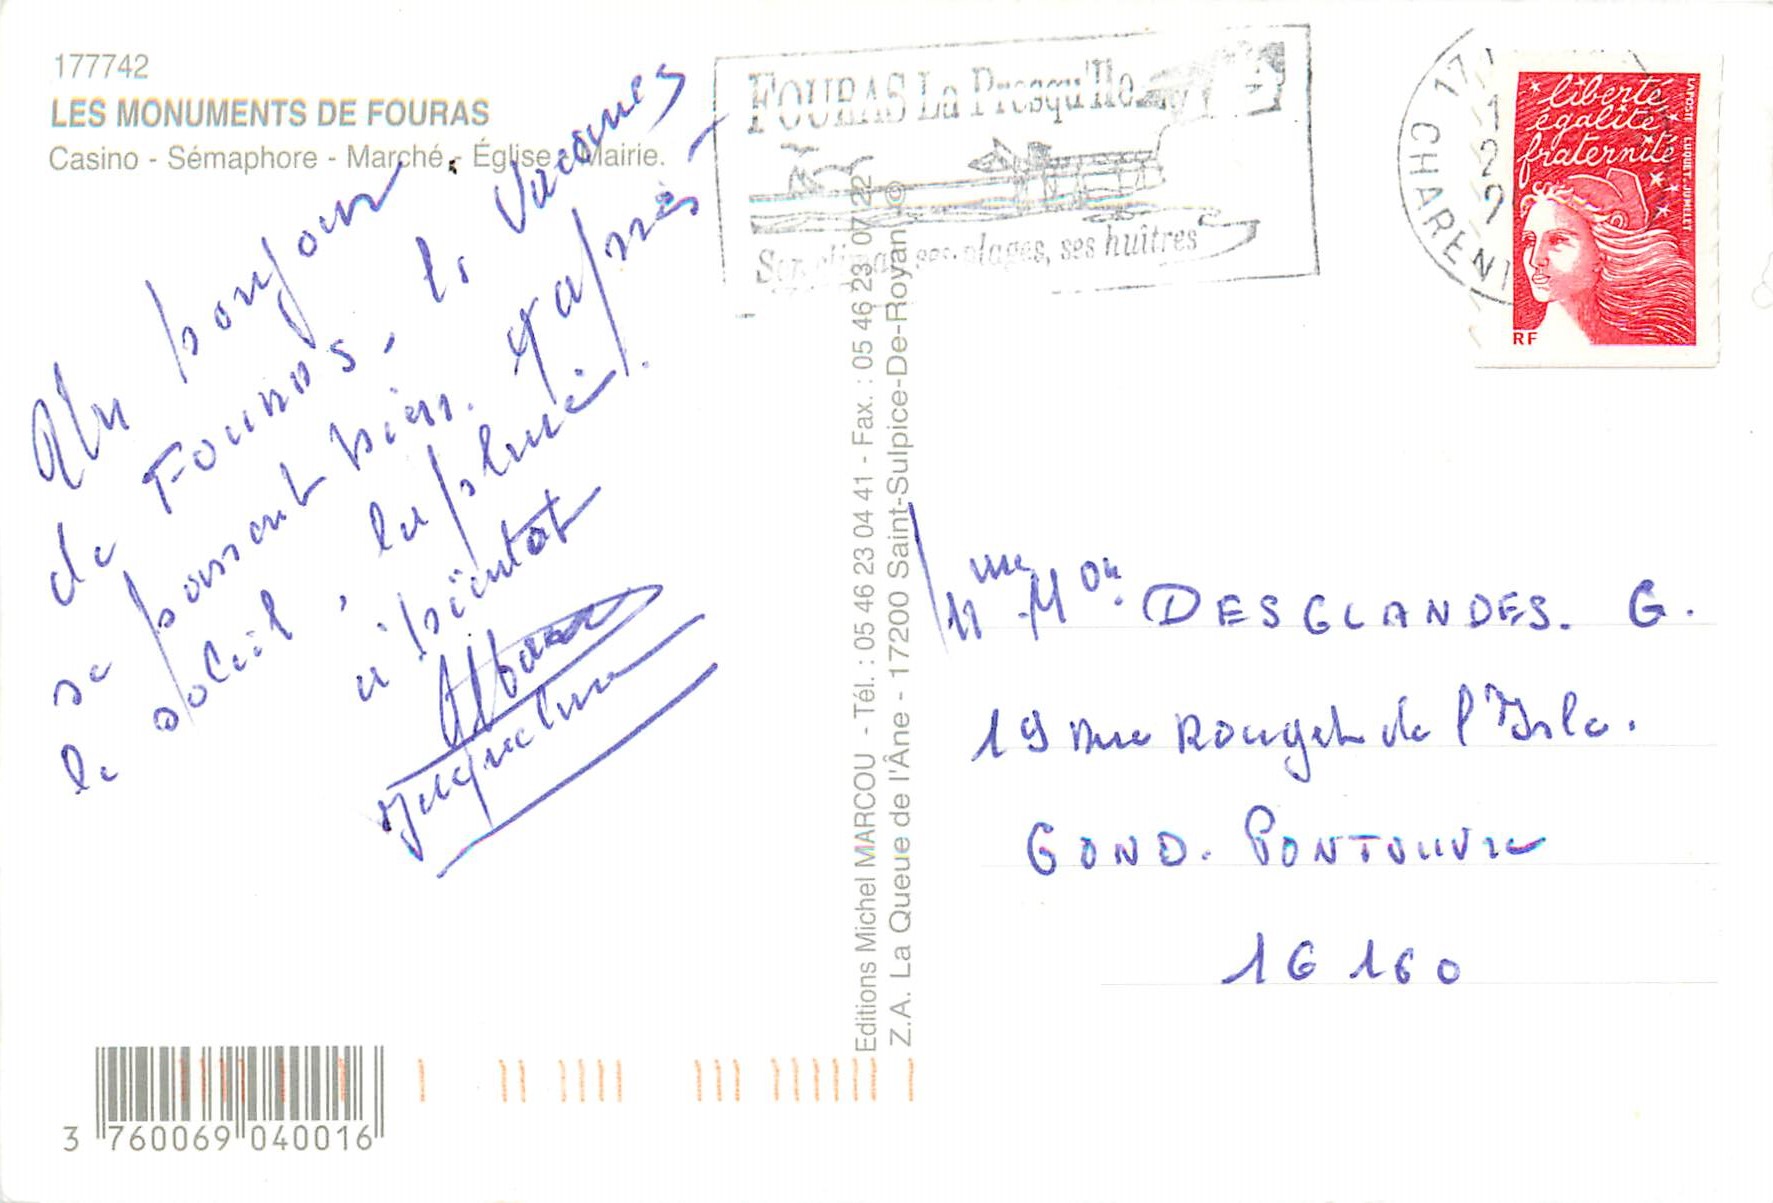 177742
LES MONUMENTS DE FOURAS
Casino - Sémaphore - Marché - Église - Mairie.
Un bonjour
de Fouras, les vacances
se passent bien. après
le soleil, la pluie !.
à bientôt
Jacqueline
FOURAS La Presqu'Ile
Son climat, ses plages, ses huîtres
17
CHARENT
liberté
égalité
fraternité
LA POSTE LUQUET-JUMELET
RF
Editions Michel MARCOU - Tél. : 05 46 23 04 41 - Fax. : 05 46 23 07 22
Z.A. La Queue de l'Âne - 17200 Saint-Sulpice-De-Royan ©
Mme Mr DESGLANDES. G.
19 rue Rouget de l'Isle.
GOND. PONTOUVRE
16160
3 760069 040016